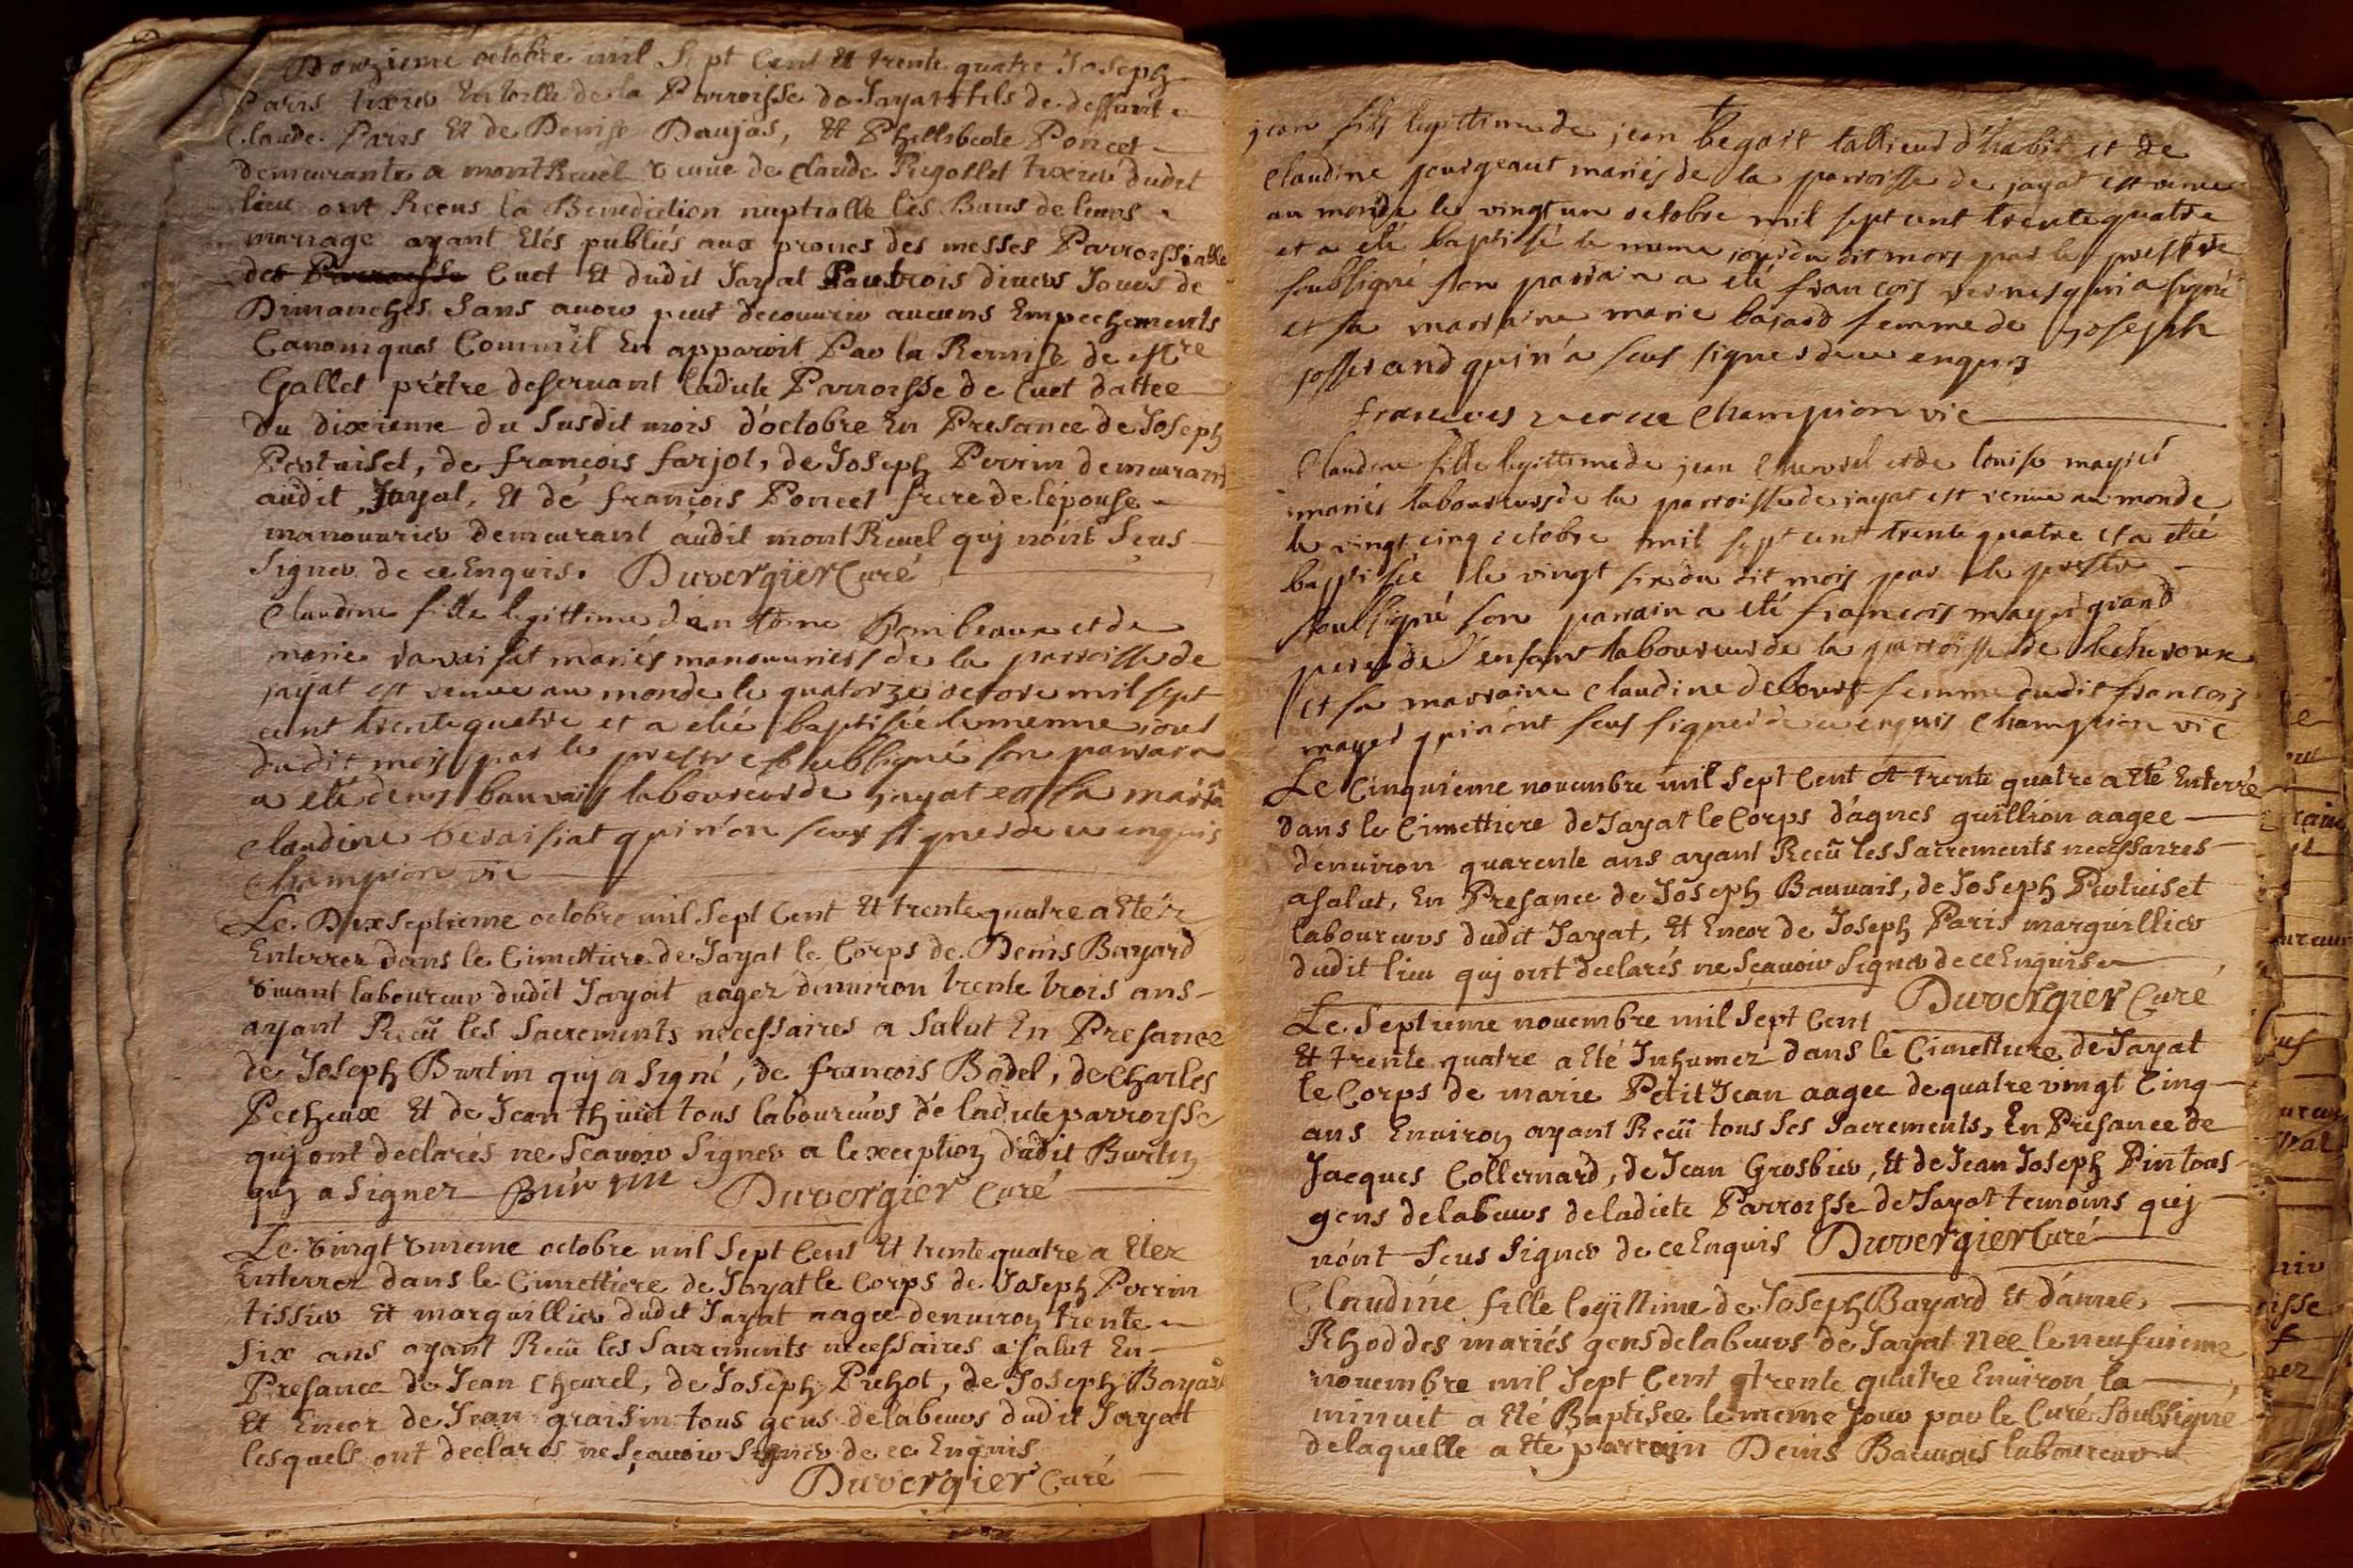 Douzieme octobre mil Sept Cent Et trente quatre Joseph
Paris tixier En toille de la Parroisse de Jayat fils de deffunt
Claude Paris Et de Denise Daujas, Et Phillsberte Poncet
demeurante a mont Revel veuve de Claude Rigollet tixier dudit
lieu ont Receus la Benediction nuptialle les Bans de leurs
mariage ayant Etés publiés aux prones des messes Parroissialle
des Cuet Et dudit Jayat Par trois divers Jours de
Dimanches Sans avoir peut decouvrir aucuns Empechements
Canoniques Comm'il En apparoit Par la Remise de Mre
Gallet prêtre deservant ladite Parroisse de Cuet dattee
du dixieme du Susdit mois d'octobre En Presance de Joseph
Pertuiset, de françois farjot, de Joseph Perrin demeurant
audit Jayat, Et de françois Poncet frere de lépouse
manouvrier demeurant audit mont Revel quj nónt Seus
Signer de ce Enquis. Duvergier Curé
Claudine fille legittime dan toine Pombeaux et de
marie varaisat mariés manouvriers de la parroisse de
jayat est venue au monde le quatorze octore mil sept
cent trentequatre et a eté baptisée le meme jour
dudit mois par le prestre soubsigné son parrain
a eté denis bauvais laboureur de jayat et sa marra
Claudine veraisiat quin'on seus signer de ce enquis
Champion vic
Le Dixseptieme octobre mil Sept Cent Et trente quatre a Eté
Enterrer dans le Cimettiere de Jayat le Corps de Denis Bayard
vivant laboureur dudit Jayat aagez d'environ trente trois ans
ayant Reçû les Sacrements necessaires a Salut En Presance
de Joseph Burtin quj a Signé, de françois Badel, de Charles
Pecheux Et de Jean thuiet tous laboureurs de ladite parroisse
quj ont declarés ne Sçavoir Signer a lexception dudit Burtin
quj a Signer Burtin Duvergier Curé
Le vingt unieme octobre mil Sept Cent Et trente quatre a Etez
Enterrez dans le Cimettiere de Jayat le Corps de Joseph Perrin
tissier Et marguillier dudit Jayat aagee denviron trente
Six ans ayant Reçû les Sacrements necessaires a Salut En
Presance de Jean Chevrel, de Joseph Prehot, de Joseph Bayard
Et Encor de Jean graisin tous gens de labeurs dudit Jayat
lesquels ont declarés ne Sçavoir Signer de ce Enquis
Duvergier Curé
jean fils legittime de jean begoit tallieur d'habit et de
Claudine pourgeaut mariés de la parroisse de jayat est venu
au monde le vingtun octobre mil sept cent trentequatre
et a eté baptisé le meme jour du dit mois par le prestre
soubsigné son parrain a eté françois vernes qui a signé
et sa marraine marie bajard femme de joseph
josserand quin'a seus signer de ce enquis
francois verne Champion vic
Claudine fille legittime de jean Chevrel et de louise mayet
mariés laboureurs de la parroisse de jayat est venue au monde
le vingt cinq octobre mil sept cent trente quatre et a eté
baptisée le vingt six du dit mois par le prestre
soubsigné son parrain a eté françois mayet grand
pere de l'enfant laboureur de la parroisse de lecheroux
et sa marraine Claudine debourg femme dudit françois
mayet quin'ont seus signer de ce enquis Champion vic
Le Cinquieme novembre mil Sept Cent Et trente quatre a Eté Enterré
dans le Cimettiere de Jayat le Corps d'agnes guillion aagee
denviron quarente ans ayant Reçû les Sacrements necessaires
a Salut, En Presance de Joseph Bauvais, de Joseph Pertuiset
laboureurs dudit Jayat, Et Encor de Joseph Paris marguillier
dudit lieu quj ont declarés ne Sçavoir Signer de ce Enquise
Duvergier Curé
Le Septieme novembre mil Sept Cent
Et trente quatre a Eté Inhumez dans le Cimettiere de Jayat
le Corps de marie Petit Jean aagee de quatre vingt Cinq
ans Environ ayant Reçû tous Ses Sacrements, En Presance de
Jacques Collernard, de Jean Grosbier, Et de Jean Joseph Pintoas
gens de labeurs de ladicte Parroisse de Jayat temoins quj
nónt Seus Signer de ce Enquis Duvergier Curé
Claudine fille legittime de Joseph Bayard Et d'
Rhoddes mariés gens de labeurs de Jayat née le neufvieme
novembre mil Sept Cent trente quatre Environ la
minuit a Eté Baptisee le meme Jour par le Curé Soubsigné
de laquelle a Eté parrain Denis Bauvais laboureur